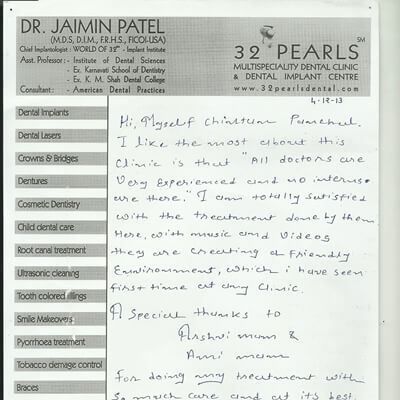 DR. JAIMIN PATEL
(M.D.S, D.I.M., F.R.H.S., FICOI-USA)
Chief Implantologist : WORLD OF 32" - Implant Institute
Asst. Professor : - Institute of Dental Sciences
- Ex. Karnavati School of Dentistry
- Ex. K. M. Shah Dental College
Consultant : - American Dental Practices
32 PEARLS
SM
MULTISPECIALITY DENTAL CLINIC
& DENTAL IMPLANT CENTRE
www.32pearlsdental.com
4-12-13
Dental Implants
Dental Lasers
Crowns & Bridges
Dentures
Cosmetic Dentistry
Child dental care
Root canal treatment
Ultrasonic cleaning
Tooth colored fillings
Smile Makeovers
Pyorrhoea treatment
Tobacco demage control
Braces
Hi, Myself Chintan Panchal.
I like the most about this
Clinic is that "All doctors are
Very Experienced and no interns
are there." I am totally satisfied
with the treatment done by them
Here, with music and videos
they are creating a friendly
Environment, which i have seen
first time at any Clinic.
A Special thanks to
mam &
Ami mam
For doing my treatment with
So much care and at its best.